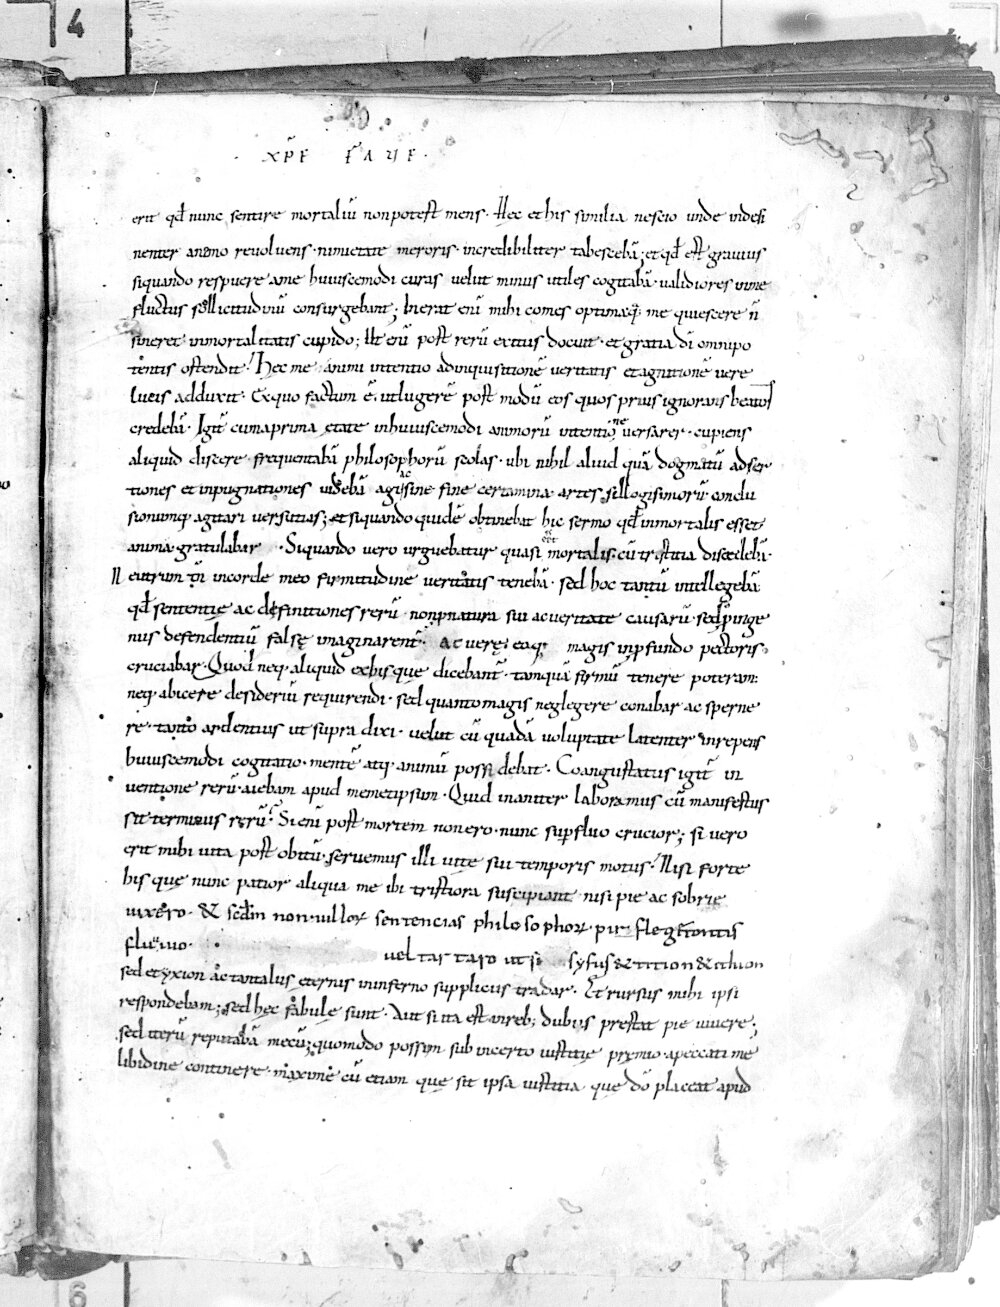 4
XP̄E FAUE.
erit qđ nunc sentire mortaliū non potest mens. Hec et his similia nescio unde indesi
nenter animo revoluens. nimietate meroris. incredibiliter tabescebā; et qđ est gravius
siquando respuere ame huiuscemodi curas velut minus utiles cogitabā. validiores in me
fluctus sollicitudinū consurgebant; Inerat enī mihi comes optima. q; me quiescere ñ
sineret. inmortalitatis cupido; Ut enī post rerū exitus docuit. et gratia dī omnipo
tentis ostendit. Hec me animi intentio ad inquisitionē veritatis et agnitionē vere
lucis adduxit. Ex quo factum ē. ut lugerē post modū eos quos prius ignorans beatos
credebā. Igit̄ cum a prima etate in huiuscemodi animorū intentione versarer. cupiens
aliquid discere frequentabā philosophorū scolas. ubi nihil aliud quā dogmatū adser
tiones et inpugnationes videbā agi ac sine fine certamina artes sillogismorū conclu
sionumq; agitari versutias; et siquando quidē obtinebat hic sermo qđ inmortalis esset
anima gratulabar. Siquando vero urguebatur quasi esset mortalis. cū tristitia discedebā.
Neutrum tn̄ in corde meo firmitudine veritatis tenebā. sed hoc tantū intellegebā
qđ sententie ac definitiones rerū. non p natura sui ac veritate causarū. sed p inge
nus defendentiū falsę imaginarent̄. ac verę. eaq; magis in pfundo pectoris.
cruciabar. Quod neq. aliquid ex his que dicebant̄. tamquā firmū tenere poteram.
neq. abicere desideriū requirendi. sed quanto magis neglegere conabar ac sperne
re. tanto ardentius ut supra dixi. velut cū quadā voluptate latenter inrepens
huiuscemodi cogitatio. mentē atq. animū possidebat. Coangustatus igit̄ in
ventione rerū. aiebam apud memetipsum. Quid inaniter laboramus cū manifestus
sit terminus rerū. Si enī post mortem non ero. nunc supfluo crucior; si vero
erit mihi vita post obitū. servemus illi vite sui temporis motus. Nisi forte
his que nunc patior aliqua me ibi tristiora suscipiant nisi pie ac sobrie
vixero. & scdm non nullor sentencias philosophor. pir flegetontis
fluvio. vel tartaro ut si syfus & tition & ithion
sed etyxion ac tantalus eternis in inferno suppliciis tradar. Et rursus mihi ipsi
respondebam; sed hec fabule sunt. Aut si ita est in reb; dubiis prestat pie vivere;
sed iterū reputabā mecū; quomodo possim sub incerto iustitię pręmio. a peccati me
libidine continere. maxime cū etiam que sit ipsa iustitia que dō placeat apud
6